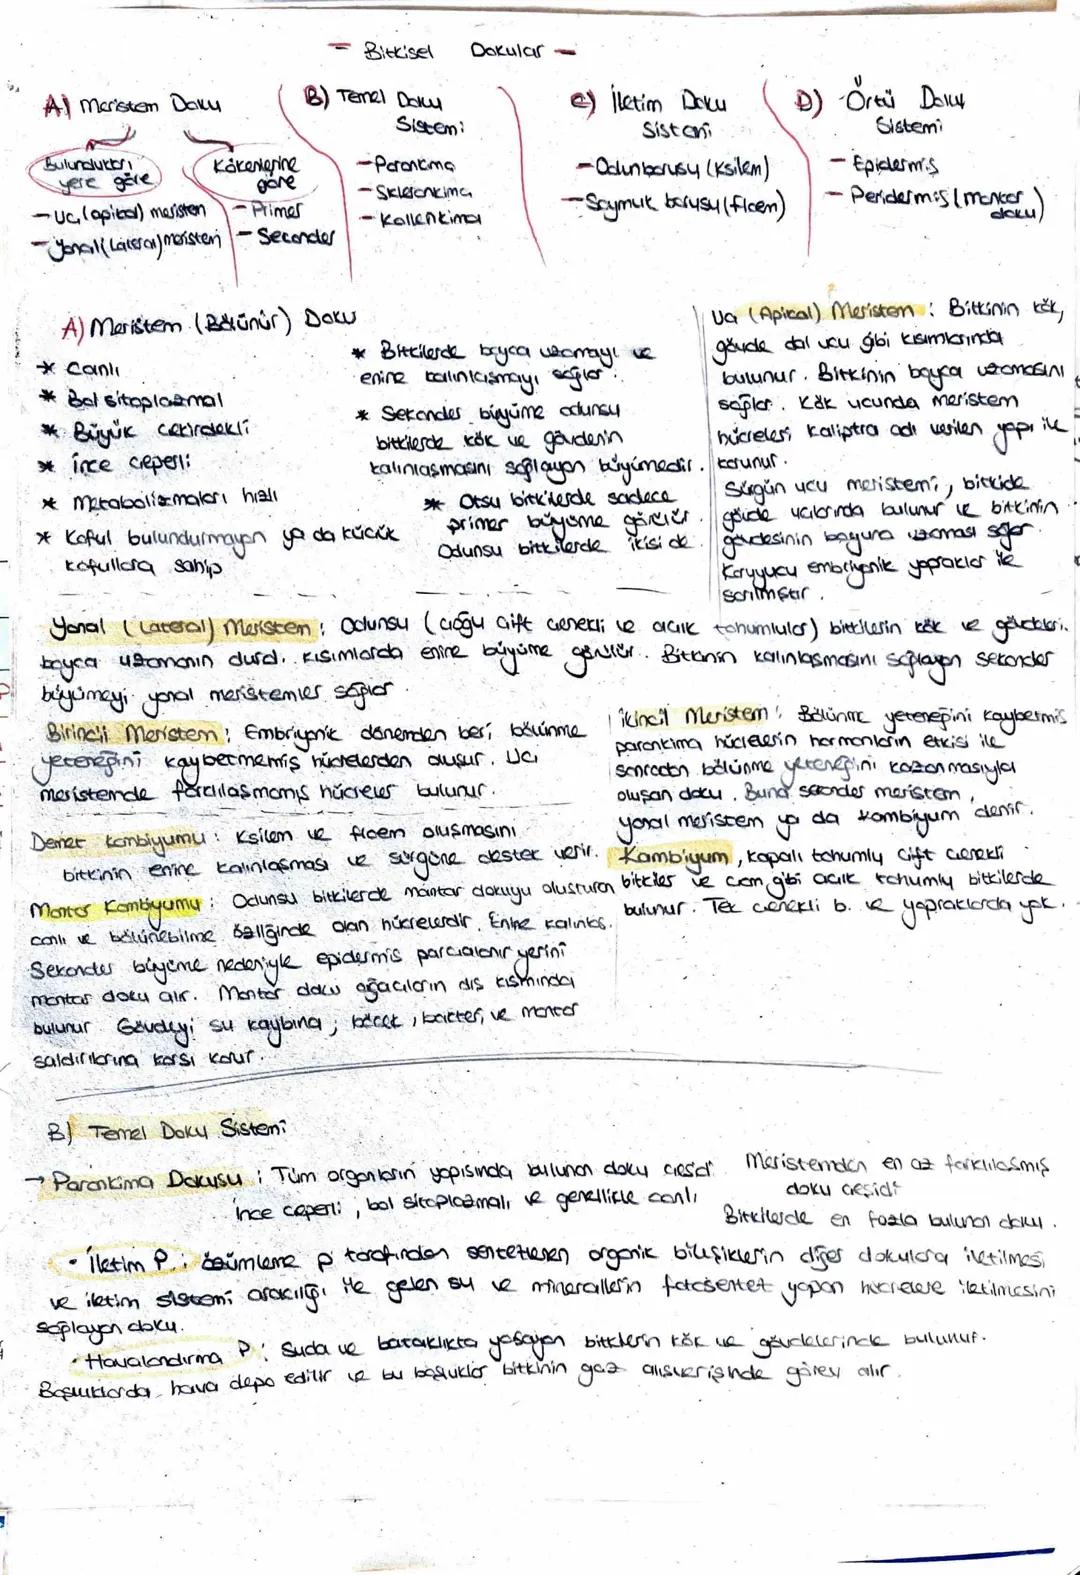 - Bitkisel Dokular -
A) Meristem Doku
Bulundukları
yere göre
- Uç (apikal) meristem
- Yanal (Lateral) meristem
Kökenlerine
göre
- Primer
- Sekonder
B) Temel Doku
Sistemi
- Parankima
- Sklerankima
- Kollenkima
C) İletim Doku
Sistemi
- Odunborusu (Ksilem)
- Soymuk borusu (floem)
D) Örtü Doku
Sistemi
- Epidermis
- Peridermis (mantar
doku)
A) Meristem (Bölünür) Doku
* Canlı
* Bol sitoplazmalı
* Büyük çekirdekli
* İnce çeperli
* Metabolizmaları hızlı
* Koful bulundurmayan ya da küçük
kofullara sahip
* Bitkilerde boyca uzamayı ve
enine kalınlaşmayı sağlar.
* Sekonder büyüme odunsu
bitkilerde kök ve gövdenin
kalınlaşmasını sağlayan büyümedir.
* Otsu bitkilerde sadece
primer büyüme görülür.
Odunsu bitkilerde ikisi de
Uç (Apikal) Meristem : Bitkinin kök,
gövde dal ucu gibi kısımlarında
bulunur. Bitkinin boyca uzamasını
sağlar. Kök ucunda meristem
hücreleri kaliptra adı verilen yapı ile
korunur.
Sürgün ucu meristemi, bitkide
gövde uçlarında bulunur ve bitkinin
gövdesinin boyuna uzaması sağlar.
Koruyucu embriyonik yapraklar ile
sarılmıştır.
Yanal (Lateral) Meristem ; Odunsu (çoğu çift çenekli ve açık tohumlular) bitkilerin kök ve gövdeleri.
boyca uzamanın durd. kısımlarda enine büyüme görülür. Bitkinin kalınlaşmasını sağlayan sekonder
büyümeyi yanal meristemler sağlar.
Birincil Meristem ; Embriyonik dönemden beri bölünme
yeteneğini kaybetmemiş hücrelerden oluşur. Uç
meristemde farklılaşmamış hücreler bulunur.
İkincil Meristem : Bölünme yeteneğini kaybetmiş
parankima hücrelerin hormonların etkisi ile
sonradan bölünme yeteneğini kazanmasıyla
oluşan doku. Buna sekonder meristem,
yanal meristem ya da kambiyum denir.
Demet Kambiyumu : Ksilem ve floem oluşmasını
bitkinin enine kalınlaşması ve sürgüne destek verir.
Kambiyum, kapalı tohumlu çift çenekli
bitkiler ve çam gibi açık tohumlu bitkilerde
bulunur. Tek çenekli b. ve yapraklarda yok.
Mantar Kambiyumu : Odunsu bitkilerde mantar dokuyu oluşturan
canlı ve bölünebilme özelliğinde olan hücrelerdir. Enine kalınlaş.
Sekonder büyüme nedeniyle epidermis parçalanır yerini
mantar doku alır. Mantar doku ağaçların dış kısmında
bulunur. Gövdeyi su kaybına, böcek, bakteri, ve mantar
saldırılarına karşı korur.
B) Temel Doku Sistemi
→ Parankima Dokusu : Tüm organların yapısında bulunan doku çeşidi
İnce çeperli, bol sitoplazmalı ve genellikle canlı
Meristemden en az farklılaşmış
doku çeşidi
Bitkilerde en fazla bulunan doku.
• İletim P. : özümleme p tarafından sentezlenen organik bileşiklerin diğer dokulara iletilmesi
ve iletim sistemi aracılığı ile gelen su ve minerallerin fotosentez yapan hücrelere iletilmesini
sağlayan doku.
• Havalandırma P : Suda ve bataklıkta yaşayan bitkilerin kök ve gövdelerinde bulunur.
Boşluklarda hava depo edilir ve bu boşluklar bitkinin gaz alışverişinde görev alır.